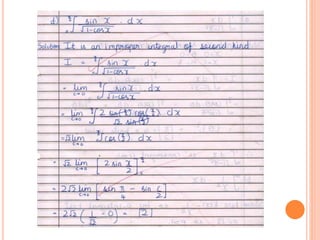 d) ∫ sin x / √1-cosx . dx
Solution It is an improper integral of second kind
I = ∫ sin x / √1-cosx . dx
= lim c→0 ∫ sin x / √1-cosx dx
= lim c→0 ∫ 2 sin(x/2) cos(x/2) / √2 sin(x/2) dx
= √2 lim c→0 ∫ cos(x/2) dx
= √2 lim c→0 [ 2 sin x/2 ]
= 2√2 lim c→0 [ sin π/4 - sin c/2 ]
= 2√2 ( 1/√2 - 0 ) = [2]